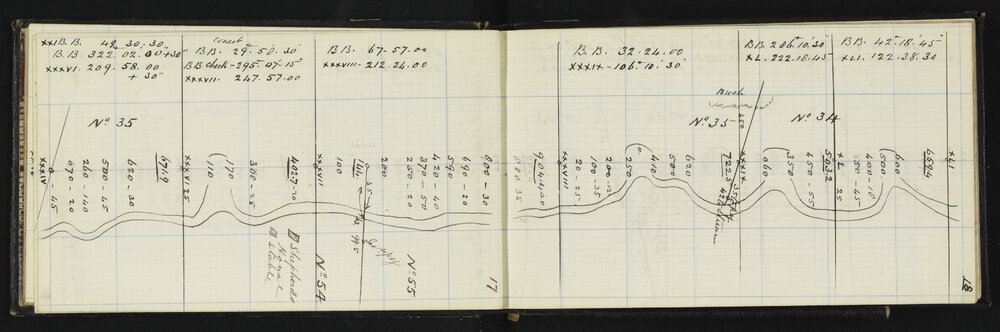 XXI B.B. 49. 30. 30"
B.B. 322. 02. 00 +30"
XXXVI. 209. 58. 00
+ 30"
Correct
B B. 29. 58. 30"
BB Check - 295. 07. 15
XXXVII. 247. 57. 00
B B. 67. 57. 00
XXXVIII - 212. 24. 00
B. B. 32. 24. 00
XXXIX - 106. 10. 30
BB 206. 10. 30"
XL. 222. 18. 45
BB 42. 18. 45
XLI. 122. 38. 30
Bush
No 35
No 35
No 34
XXXIV
0 - 45
070 - 20
260 - 40
500 - 45
620 - 30
671.9
XXXVI 25
110
170
300 - 25
XXXVII
100
144
35
200
250 - 20
370 - 50
420 - 40
590
690 - 20
800 - 30
Shepherds
House
Stable
No 54
No 55
17
800 35
904.30
XXXVIII
20
100 - 35
200
250
410
500
620
722.3
XXXIX
450
Stream
060
350
450 - 55
503.2
XL 25
250 - 45
400 - 10
500
600
659.4
XLI
18